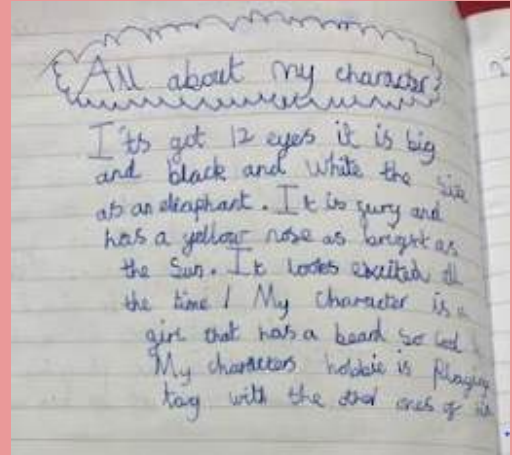 All about my character
I'ts got 12 eyes it is big
and black and white the size
as an elaphant. It is fury and
has a yellow nose as bright as
the Sun. It looks excited all
the time! My character is a
girl that has a beard so
My characters hobbie is playing
tag with the other ones of